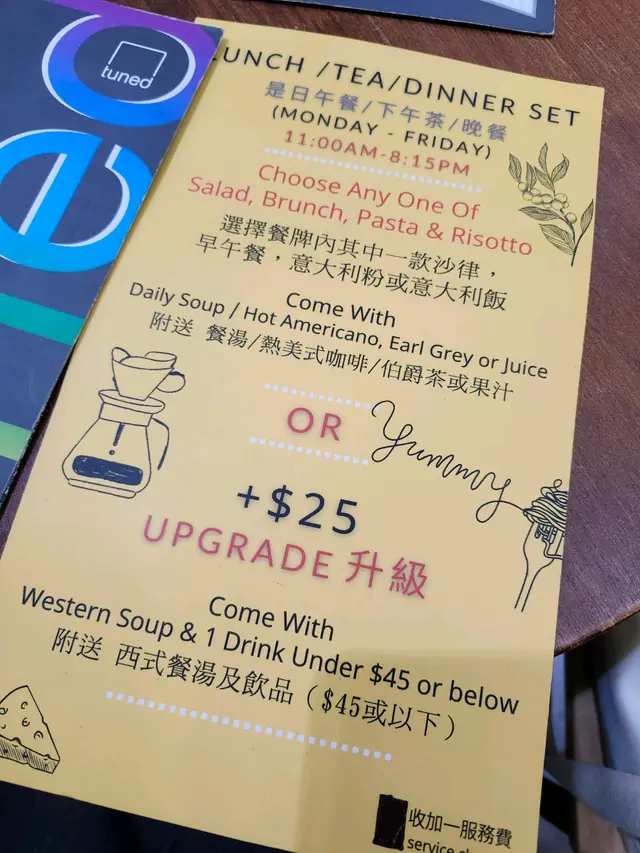 tuned
LUNCH /TEA/DINNER SET
是日午餐/下午茶/晚餐
(MONDAY - FRIDAY)
11:00AM-8:15PM
Choose Any One Of
Salad, Brunch, Pasta & Risotto
選擇餐牌內其中一款沙律，
早午餐，意大利粉或意大利飯
Come With
Daily Soup / Hot Americano, Earl Grey or Juice
附送 餐湯/熱美式咖啡/伯爵茶或果汁
OR
Yummy
+$25
UPGRADE 升級
Come With
Western Soup & 1 Drink Under $45 or below
附送 西式餐湯及飲品（$45或以下）
收加一服務費
service